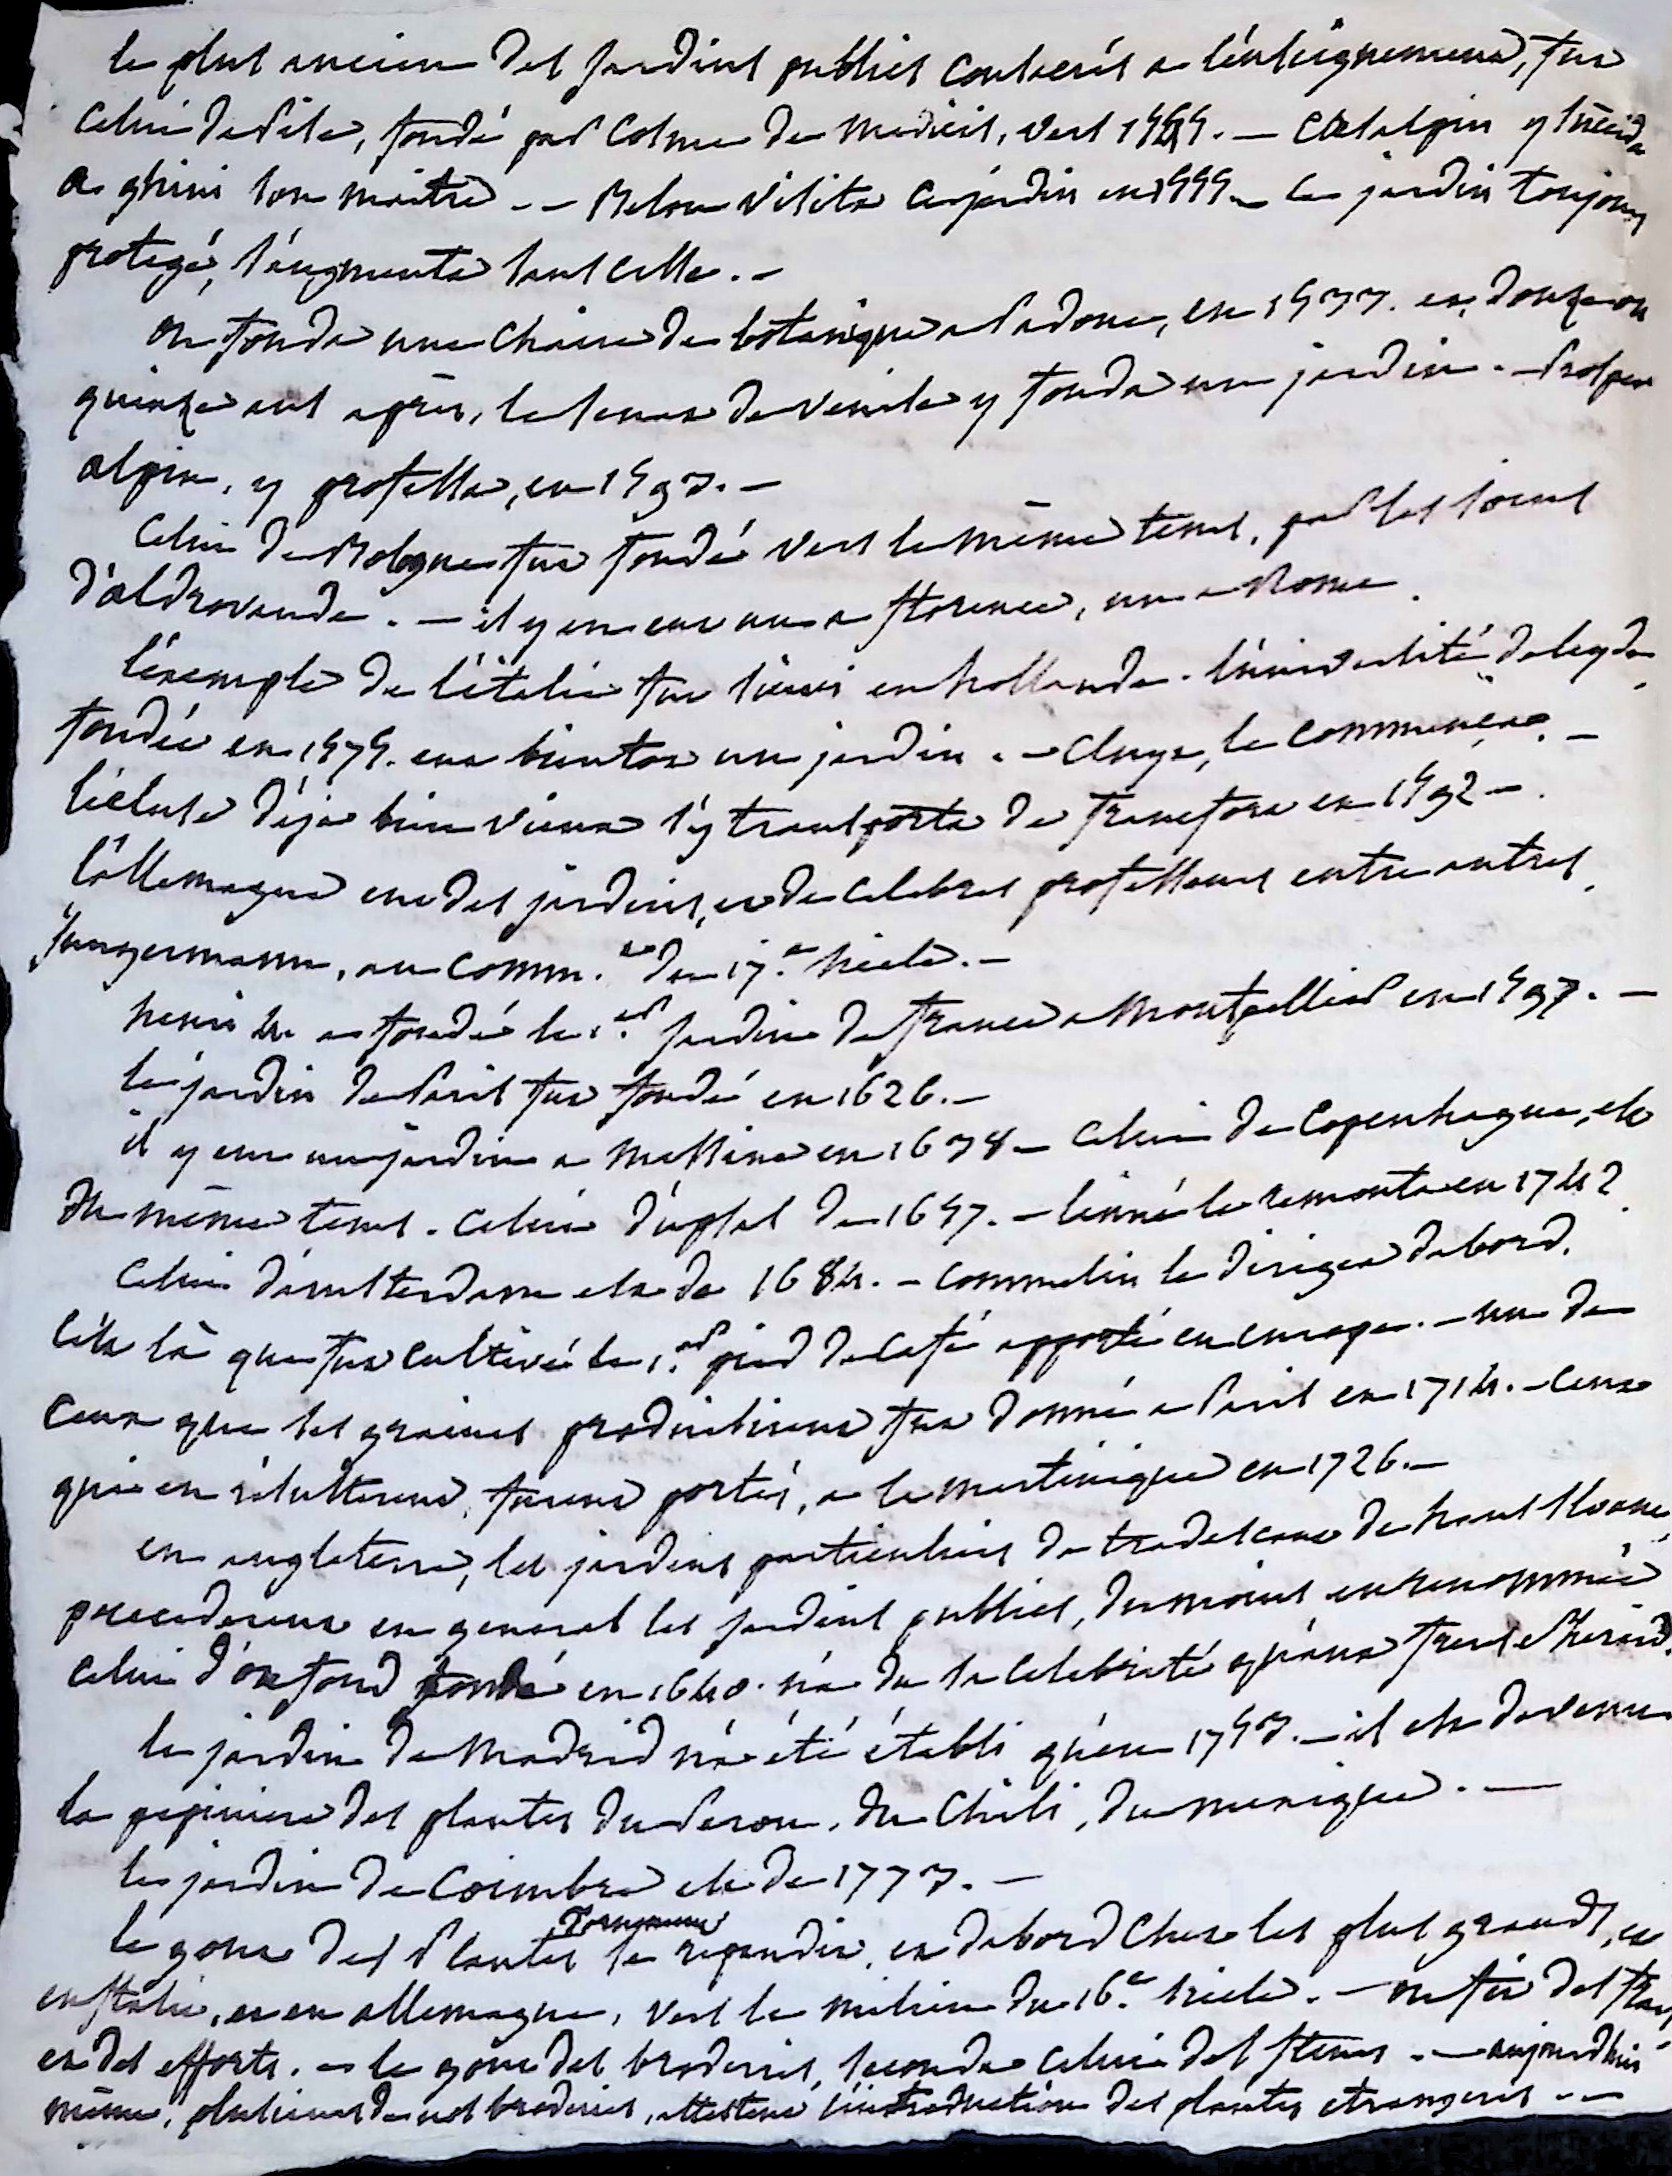 le plus ancien des jardins publics consacrés a l'enseignement, fut
celui de Pise, fondé par Cosme de Medicis, vers 1544. — Cesalpin y succéda
a ghini son maître. — Belon visita ce jardin en 1555. — le jardin toujours
protegé, s'augmenta sans cesse. —
on fonda une chaire de botanique a Padoue, en 1533. et, douze ou
quinze ans après, le senat de Venise y fonda un jardin. — Prosper
alpin, y professa, en 1593. —
celui de Bologne fut fondé vers le même tems, par les soins
d'aldrovande. — il y en eut un a florence, un a Rome.
l'exemple de l'italie fut suivi en hollande. l'université de leyde,
fondée en 1575. eut bientot un jardin. — Cluyt, le commença. —
l'écluse déja bien vieux s'y transporta de francfort en 1592 —.
l'allemagne eut des jardins, et de celebres professeurs entre autres
Jungermann, au comm.t du 17.e siecle. —
henri 4 a fondé le 1.er jardin de france a Montpellier en 1597. —
le jardin de Paris fut fondé en 1626. —
il y eut un jardin a Messine en 1638 — celui de Copenhague, est
du même tems. celui d'upsal de 1657. — linné le remonta en 1742.
celui d'amsterdam est de 1684. — commelin le dirigea dabord.
c'est là que fut cultivé le 1.er pied de café apporté en europe. — un de
ceux que ses graines produisirent fut donné a Paris en 1714. — ceux
qui en résulterent, furent portés, a la martinique en 1726. —
en angleterre, les jardins particuliers de tradescant de hans Sloane,
precederent en general les jardins publics, du moins en renommée
celui d'oxford fondé en 1640. n'a du sa celebrité qu'aux freres Sherard.
le jardin de Madrid n'a été établi qu'en 1753. — il est devenu
la pepiniere des plantes du Perou, du Chili, du mexique. —
le jardin de Coimbre est de 1773. —
le gout des Plantes se repandit, et dabord chez les plus grands, et
en italie, et en allemagne, vers le milieu du 16.e siecle. — on fit des frais
et des efforts. — le gout des broderies, seconda celui des fleurs. — aujourdhui
même, plusieurs de nos broderies, attestent l'introduction des plantes etrangeres —